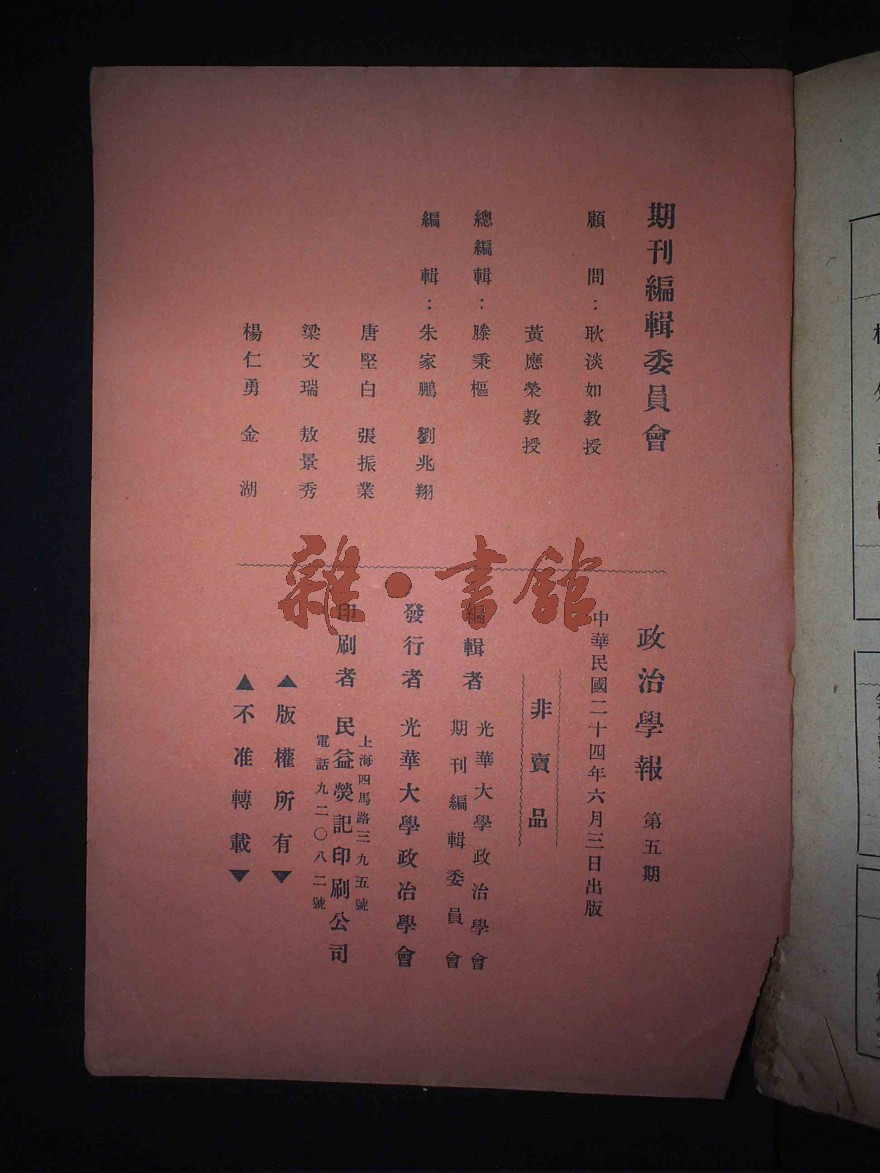 期刊編輯委員會
顧問：耿淡如教授
黃應榮教授
總編輯：滕秉樞
編輯：朱家鵬 劉兆翔
唐堅白 張振業
梁文瑞 敖景秀
楊仁勇 金湖
政治學報 第五期
中華民國二十四年六月三日出版
非賣品
編輯者 光華大學政治學會
期刊編輯委員會
發行者 光華大學政治學會
上海四馬路三九五號
印刷者 民益熒記印刷公司
電話九二〇八二號
▲版權所有▼
▲不准轉載▼
雜·書館